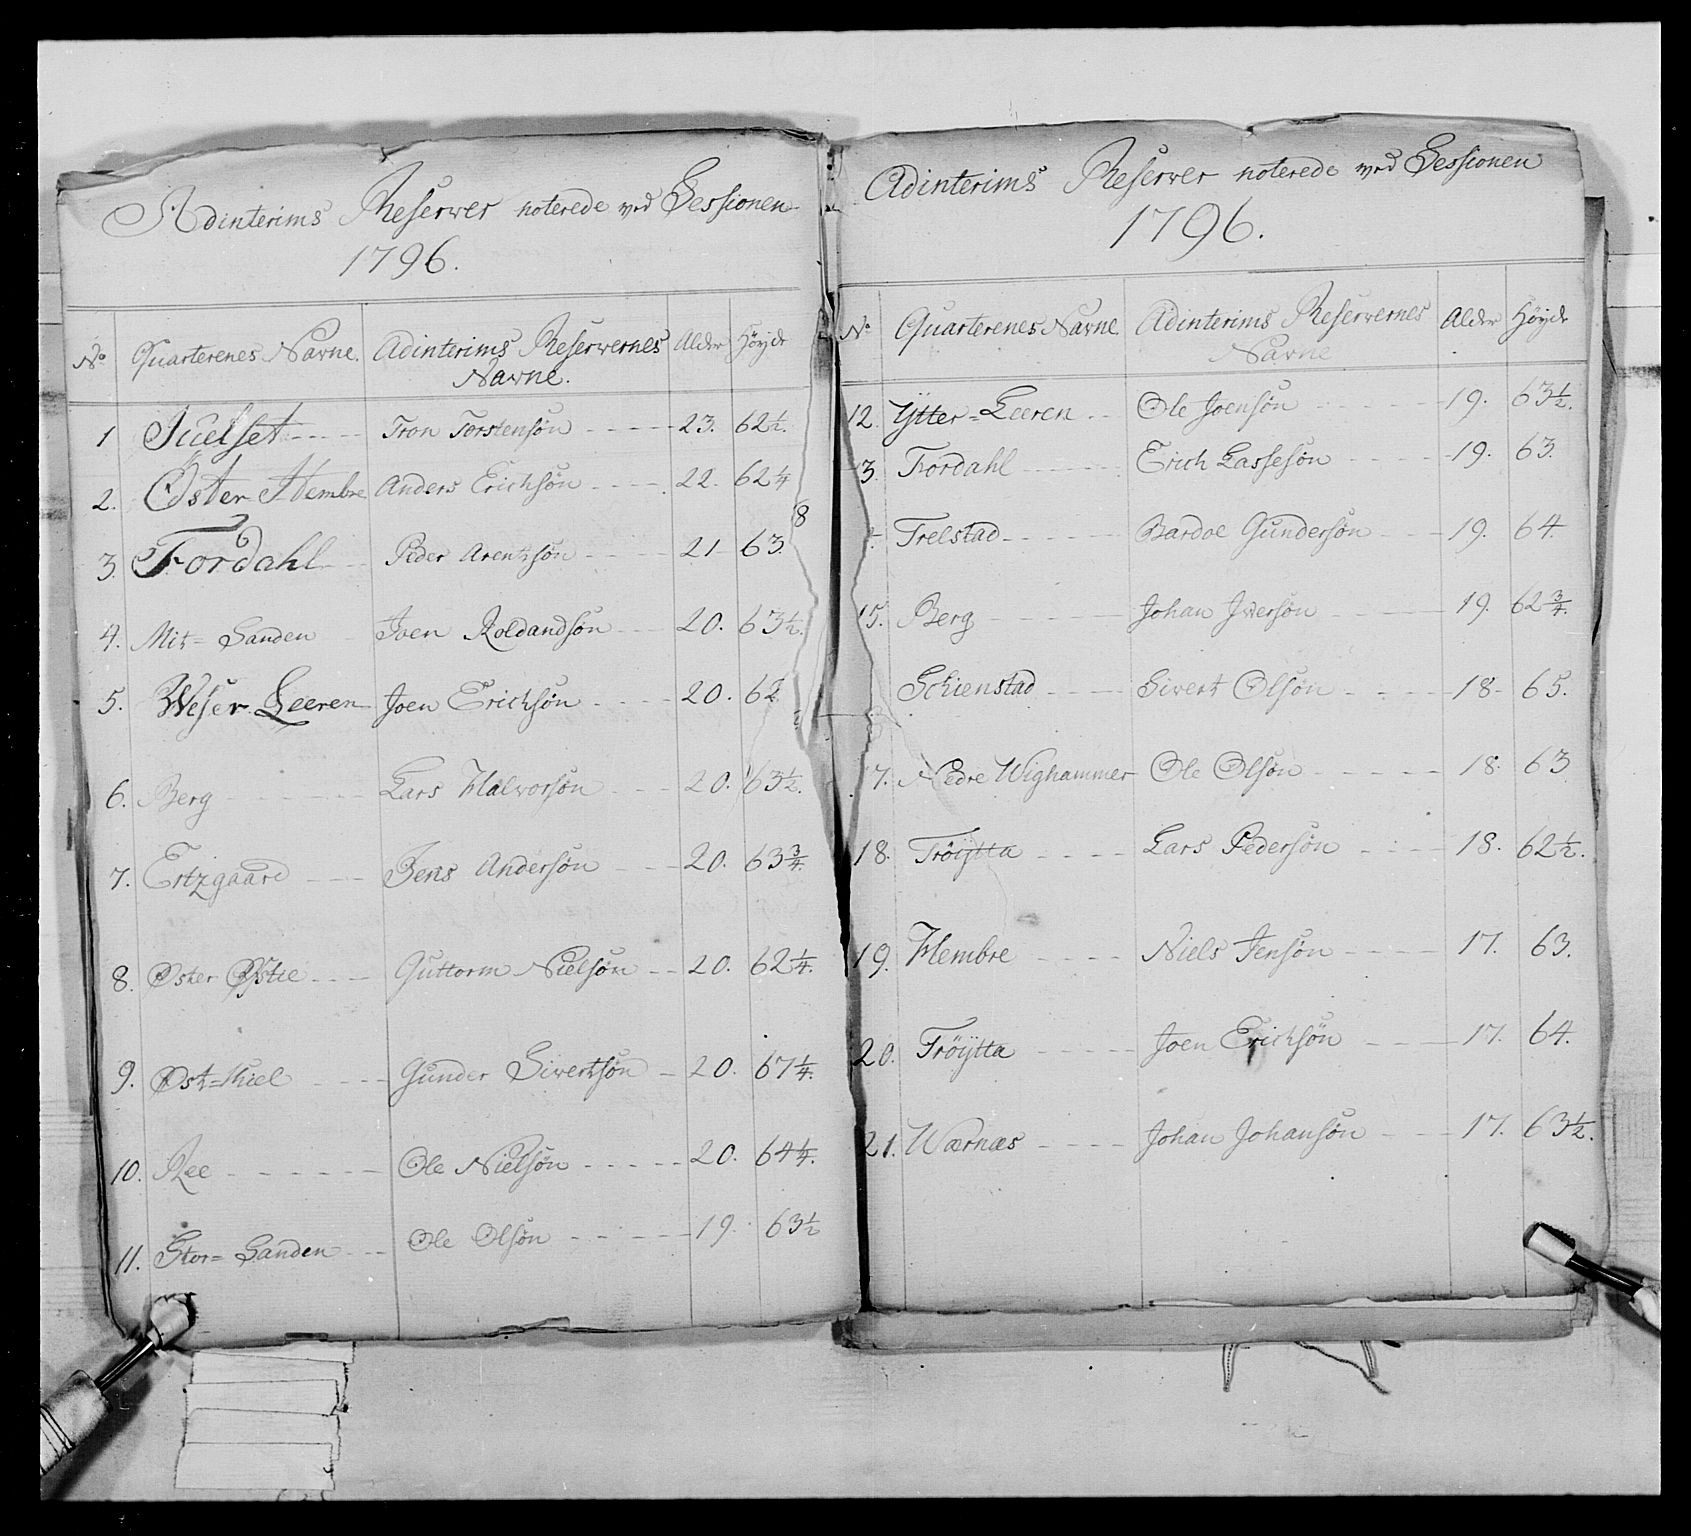 Adinterims Reserver noterede ved Sessionen
1796.
No Quarterenes Navne. Adinterims Reservernes Navne. Alder Høyde
1 Juelset Tron Torstensøn 23. 62½.
2. Öster Hembre Anders Erichsøn 22. 62¼
3. Fordahl Peder Arentzsøn 21 63.
8
4. Mit= Sanden Joen Roldandsøn 20. 63½.
5. Weser Leeren Joen Erichsøn 20. 62
6. Berg Lars Halvorsøn 20. 63½.
7. Ertzgaard Jens Andersøn 20. 63¾.
8. Öster Guttorm Nielsøn 20. 62¼.
9. Gunder Sivertsøn 20. 67¼.
10. Ree Ole Nielsøn 20. 64¼.
11. Stor= Sanden Ole Olsøn 19. 63½
Adinterims Reserver noterede ved Sessionen
1796.
No Quarterenes Navne Adinterims Reservernes Navne Alder Høyde
12. Ytter=Leeren Ole Joensøn 19. 63½.
3. Fordahl Erich Lassesøn 19. 63.
Trelstad Bardoe Gundersøn 19. 64.
15. Berg Johan Iversøn 19. 62¾.
Schienstad Sivert Olsøn 18. 65.
7. Nedre Wighammer Ole Olsøn 18. 63
18. Tröytta Lars Pedersøn 18. 62½.
19. Hembre Niels Jensøn 17. 63.
20. Tröytta Joen Erichsøn 17. 64.
21. Wærnæs Johan Johansøn 17. 63½.